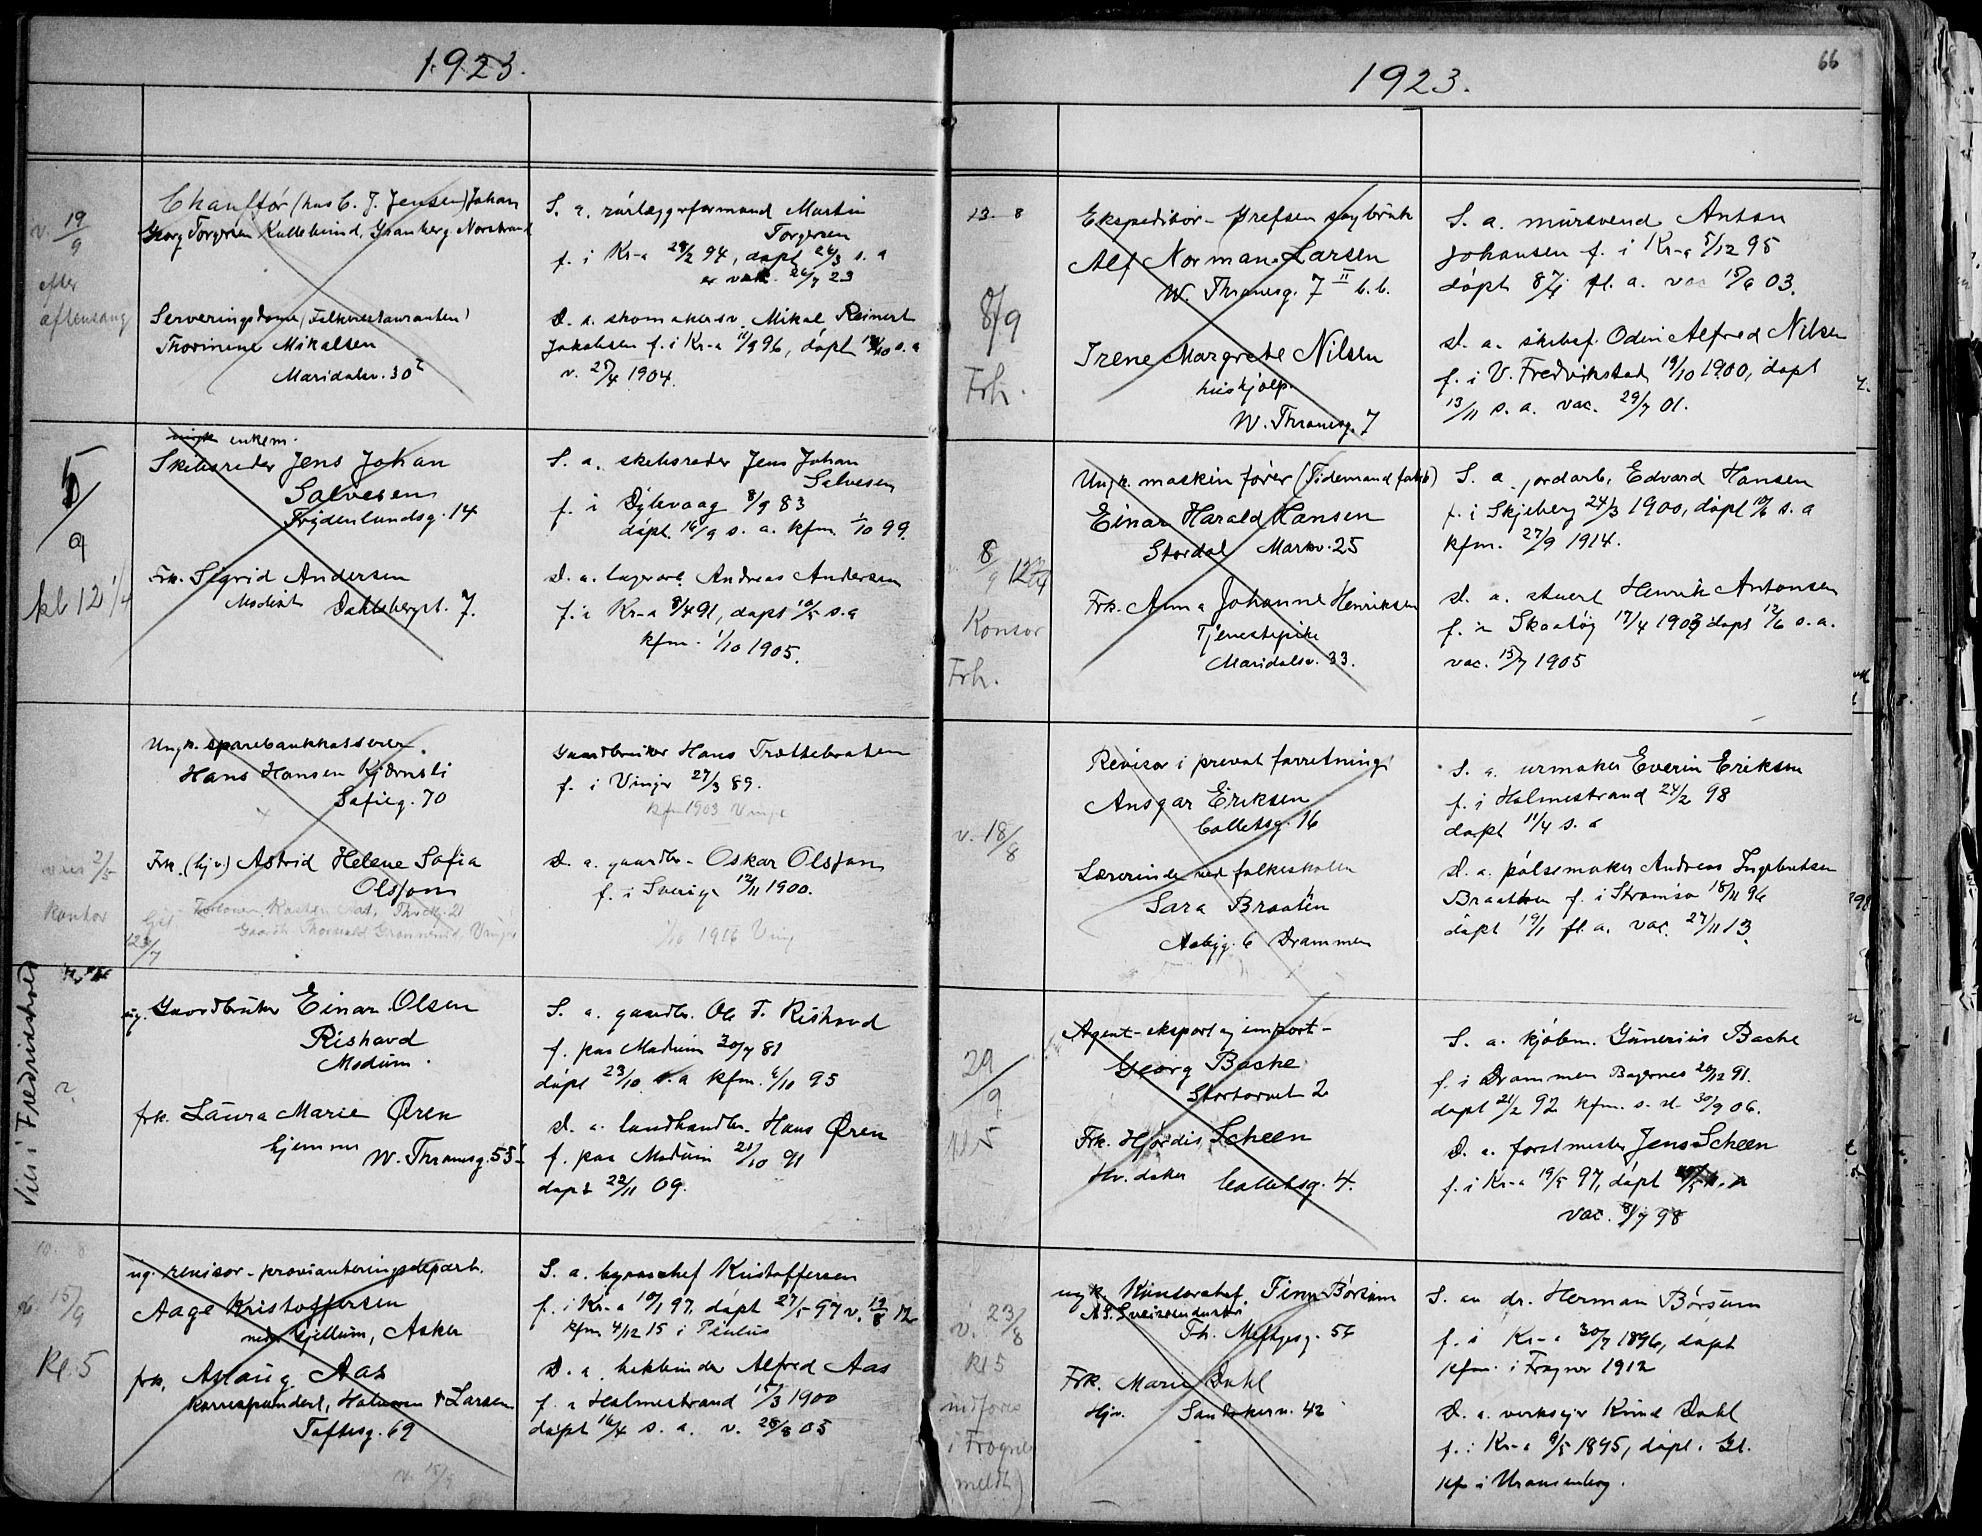 1923.
v. 19/9
efter
aftensang
Chauffør (hos C. J. Jensen) Johan
Georg Torgersen Kullebund, Granberg Norstrand
Serveringsdame (Folkerestauranten)
Thorinene Mikalsen
Maridalsv. 30
S. a. rørlæggerformand Martin
Torgersen
f. i Kr-a 28/2 94, døpt 26/3 s. a
er vac. 26/7 23
D. a. skomakersv. Mikal Reinert
Jakobsen f. i Kr-a 11/9 96, døpt 18/10 s. a
v. 25/4 1904.
5/9
kl 12 1/4
enkem.
Skibsreder Jens Johan
Salvesen
Frydenlundsg. 14
Frk. Sigrid Andersen
Modist Dahlebergst. 7.
S. a. skibsreder Jens Johan
Salvesen
f. i Dybvaag 8/9 83
døpt 16/9 s. a. kfm. 1/10 99.
D. a. lagerarb. Andreas Andersen
f. i Kr-a 8/4 91, døpt 10/5 s. a
kfm. 1/10 1905.
viet 2/5
kontor
12 3/7
Ungk. sparebankkasserer.
Hans Hansen Kjærnsli
Sofieg. 70
Frk. (hjv.) Astrid Helene Sofia
Olsson
Gaardbruker Hans Trættebraten
f. i Vinger 27/3 89.
kfm 1903 Vinger
D. a. gaardbr. Oskar Olsson
f. i Sverige 12/11 1900.
1916 Ving
Viet i Fredrikshald
?
ug. Gaardbruker Einar Olsen
Rishovd
Modum.
frk. Laura Marie Øren
hjemme W. Thranesg. 55
S. a. gaardbr. Ole T. Rishovd
f. paa Modum 30/7 81
døpt 23/10 s. a kfm. 6/10 95
D. a. landhandler Hans Øren
f. paa Modum 21/10 91
døpt 22/11 09.
15/9
Kl. 5
ug. revisor - provianteringsdepart.
Aage Kristoffersen
nedre Gjellum, Asker
frk. Aslaug Aas
Korrespondent, Halvorsen & Larsen
Toftesg. 69
v. 15/9
S. a. byraachef Kristoffersen
f. i Kr-a 10/1 97, døpt 27/5 97 v. 19/8 12
kfm 4/12 15 i Paulus
D. a. bokbinder Alfred Aas
f. i Holmestrand 15/3 1900
døpt 16/4 s. a. v. 28/8 05
66
1923.
13. 8
8/9
Frh.
Ekspeditør - Grefsen sagbruk
Alf Norman Larsen
W. Thranesg. 7 II b. b.
Irene Margrete Nilsen
hushjælp.
W. Thranesg. 7
S. a. mursvend Anton
Johansen f. i Kr-a 5/12 95
døpt 8/4 fl. a. vac 15/6 03.
D. a. skibsf. Odin Alfred Nilsen
f. i V. Fredrikstad 19/10 1900, døpt
13/11 s. a. vac. 29/7 01.
8/9
Kontor
Frh.
Ungk. maskinfører (Tidemand fabr)
Einar Harald Hansen
Stordal Markv. 25
Frk. Anna Johanne Henriksen
Tjenestepike
Maridalsv. 33.
S. a. jordarb. Edvard Hansen
f. i Skjeberg 24/3 1900, døpt 10/6 s. a
kfm. 27/9 1914.
D. a. stuert Henrik Antonsen
f. i Skaatøy 17/4 1903 døpt 12/6 s. a.
vac. 15/7 1905
v. 18/8
Revisor i privat forretning
Ansgar Eriksen
Colletsg. 16
Lærerinde ved folkeskolen
Sara Braaten
Asbjg. 6 Drammen
S. a. urmaker Everin Eriksen
f. i Holmestrand 24/2 98
døpt 11/4 s. a
D. a. pølsemaker Andreas Ingebretsen
Braathen f. i Strømsø 18/11 96
døpt 19/1 fl. a. vac. 27/11 13.
29/9
kl 5
Agent - eksport og import -
Georg Bache
Stortorvet 2
Frk. Hjørdis Scheen
Hv. datter Colletsg. 4.
S. a. kjøbm. Gunerius Bache
f. i Drammen Bragernes 20/12 91.
døpt 21/2 92 kfm. s. st. 30/9 06.
D. a. forstmester Jens Scheen
f. i Kr-a 19/5 97, døpt
vac. 8/7 98
v. 23/8
kl 5
indføres
i Frogner
meldt)
ungk. Kontorchef Finn Børsum
AS. Sveiseindustri
Th. Meltzersg. 5
Frk. Marie Dahl
Hjv. Sandakerv. 42
S. av dr. Herman Børsum
f. i Kr-a 30/7 1896, døpt
kfm. i Frogner 1912
D. a. verkseier Knud Dahl
f. i Kr-a 9/5 1895, døpt. Gl.
kf i Uranienborg.